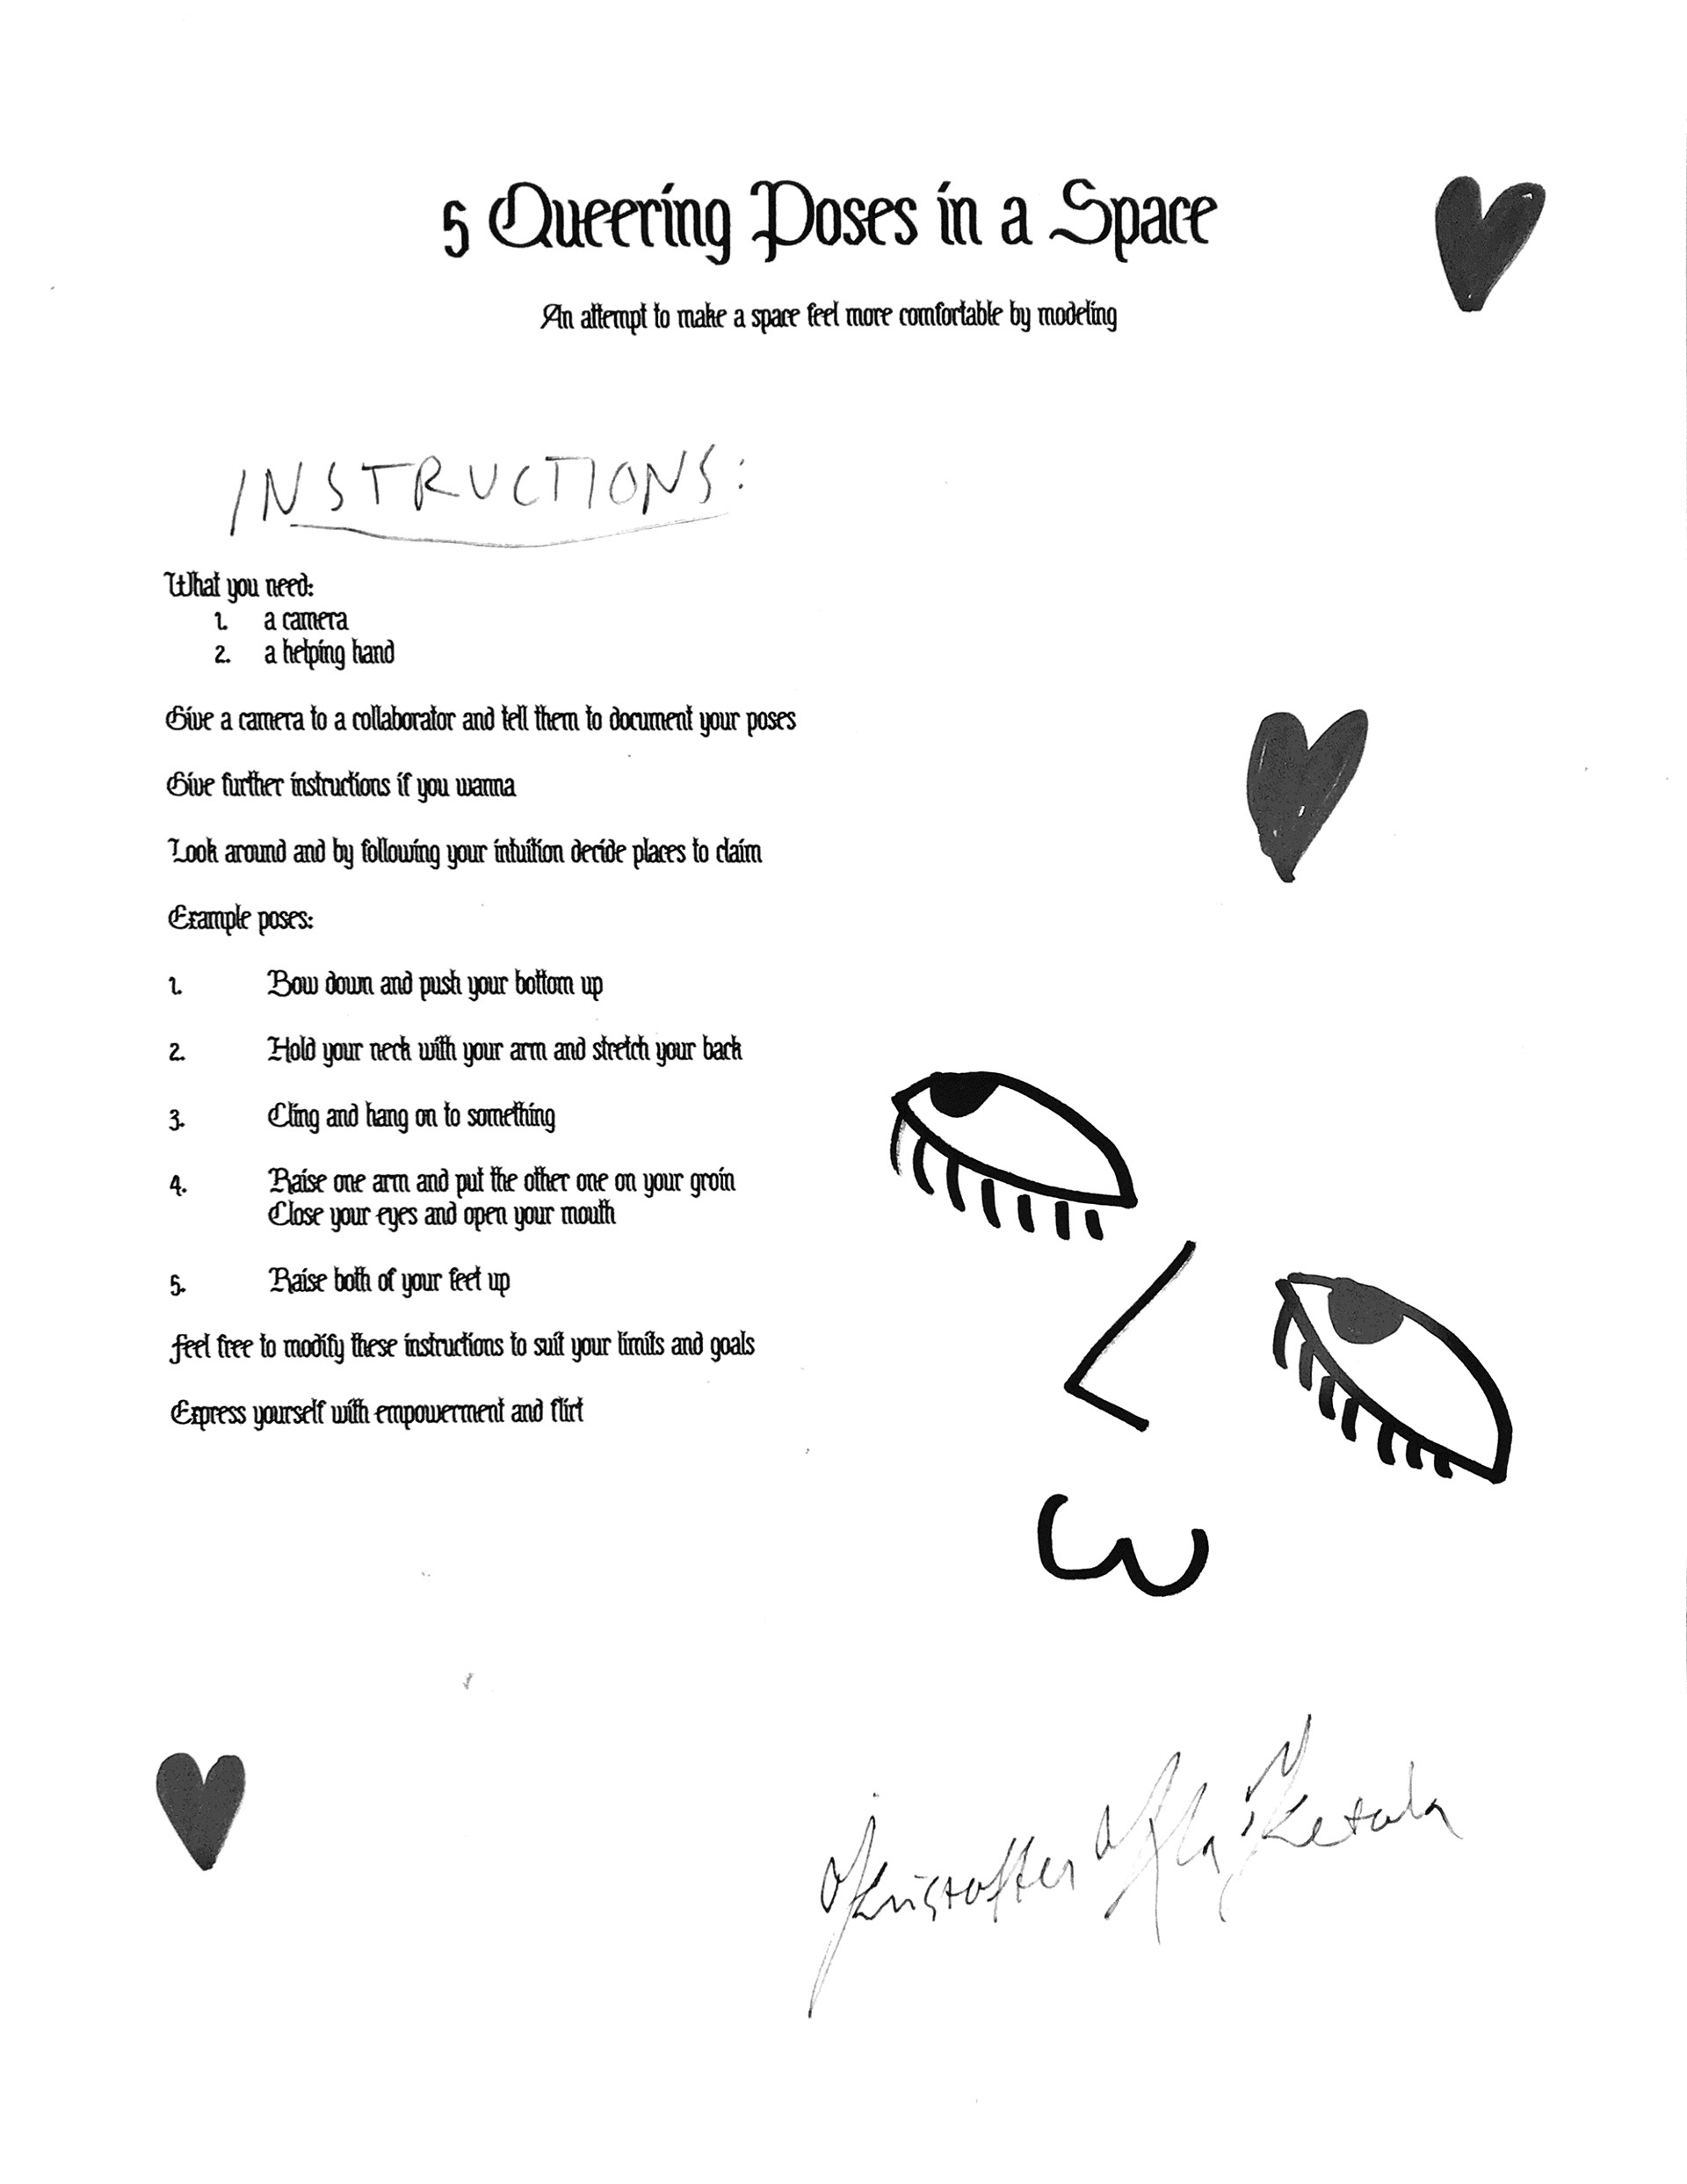 5 Queering Poses in a Space
An attempt to make a space feel more comfortable by modeling
INSTRUCTIONS:
What you need:
1. a camera
2. a helping hand
Give a camera to a collaborator and tell them to document your poses
Give further instructions if you wanna
Look around and by following your intuition decide places to claim
Example poses:
1. Bow down and push your bottom up
2. Hold your neck with your arm and stretch your back
3. Cling and hang on to something
4. Raise one arm and put the other one on your groin
Close your eyes and open your mouth
5. Raise both of your feet up
feel free to modify these instructions to suit your limits and goals
Express yourself with empowerment and flirt
Kristoffer Ala-Ketola